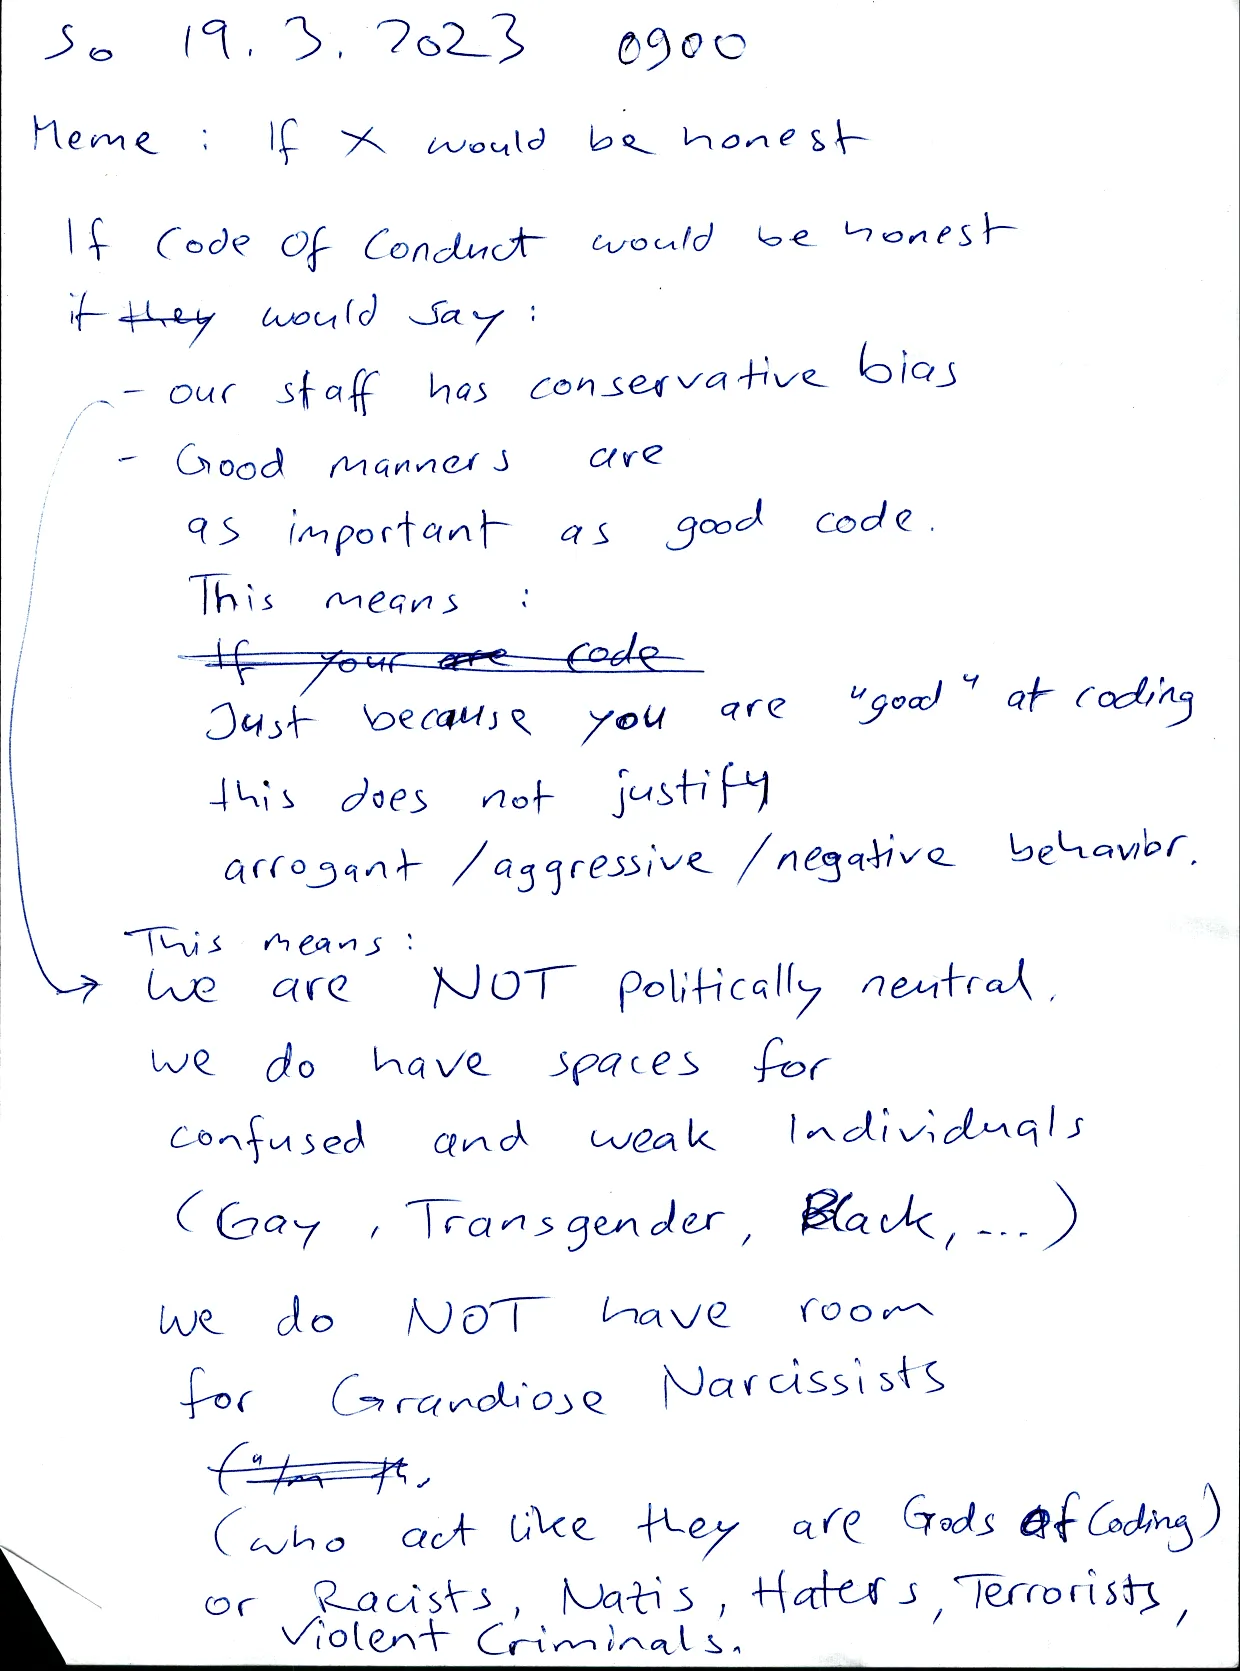 So 19. 3. 2023 0900
Meme : If X would be honest
If Code Of Conduct would be honest
it they would say :
- our staff has conservative bias
- Good manners are
as important as good code.
This means :
If your are code
Just because you are "good" at coding
this does not justify
arrogant / aggressive / negative behavior.
This means :
→ We are NOT politically neutral.
we do have spaces for
confused and weak Individuals
(Gay, Transgender, Black, ...)
We do NOT have room
for Grandiose Narcissists
(who act like they are Gods Of Coding)
or Racists, Nazis, Haters, Terrorists,
Violent Criminals.